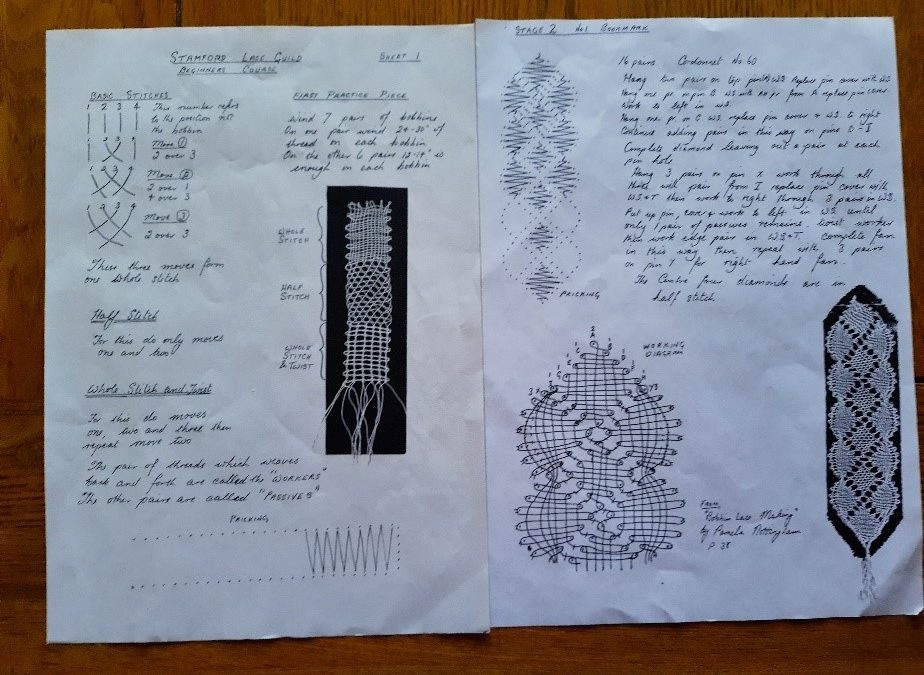 STAMFORD LACE GUILD SHEET 1
BEGINNERS COURSE
BASIC STITCHES
1 2 3 4 This number refers
to the position not
the bobbin
1 2 3 4 Move 1
2 over 3
1 2 3 4 Move 2
2 over 1
4 over 3
1 2 3 4 Move 3
2 over 3
These three moves form
one whole stitch
Half Stitch
For this do only moves
one and two
Whole Stitch and Twist
For this do moves
one, two and three then
repeat move two
The pair of threads which weaves
back and forth are called the "WORKERS"
The other pairs are called "PASSIVES"
PRICKING
FIRST PRACTICE PIECE
Wind 7 pairs of bobbins
On one pair wind 24-30" of
thread on each bobbin
On the other 6 pairs 12-14" is
enough on each bobbin
WHOLE
STITCH
HALF
STITCH
WHOLE
STITCH
& TWIST
STAGE 2 No1 BOOKMARK
16 pairs Cordonnet No 60
Hang two pairs on top WS Replace pin cover with WS
Hang one pr on pin B WS with pr from A replace pin cover
Work to left in WS.
Hang one pr on C WS replace pin cover & WS to right
Continue adding pairs in this way on pins D - I
Complete diamond leaving out a pair at each
pin hole
Hang 3 pairs on pin X work through all
three with pair from I replace pin cover with
WS&T then work to right through 3 pairs in WS.
Put up pin, cover & work to left in WS until
only 1 pair of passives remains. twist workers
then work edge pair in WS&T Complete fan
in this way then repeat with 3 pairs
on pin Y for right hand fan.
The Centre four diamonds are in
half stitch
PRICKING
WORKING
DIAGRAM
From
"Bobbin Lace Making"
by Pamela Nottingham
P 38